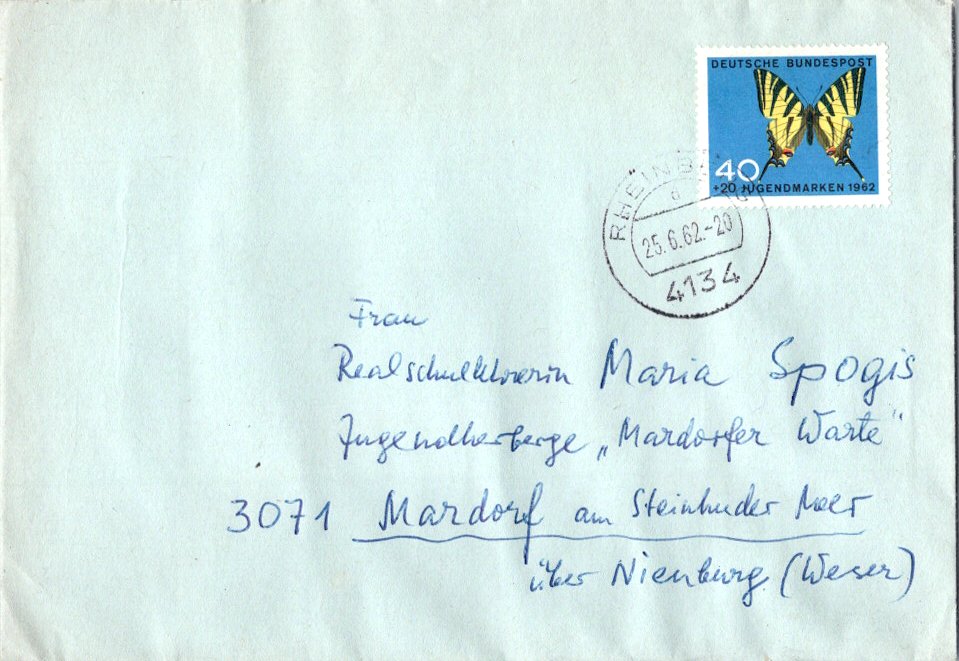 DEUTSCHE BUNDESPOST
40
+20 JUGENDMARKEN 1962
RHEINBERG
a
25.6.62.-20
4134
Frau
Realschullehrerin Maria Spogis
Jugendherberge „Mardorfer Warte“
3071 Mardorf am Steinhuder Meer
über Nienburg (Weser)